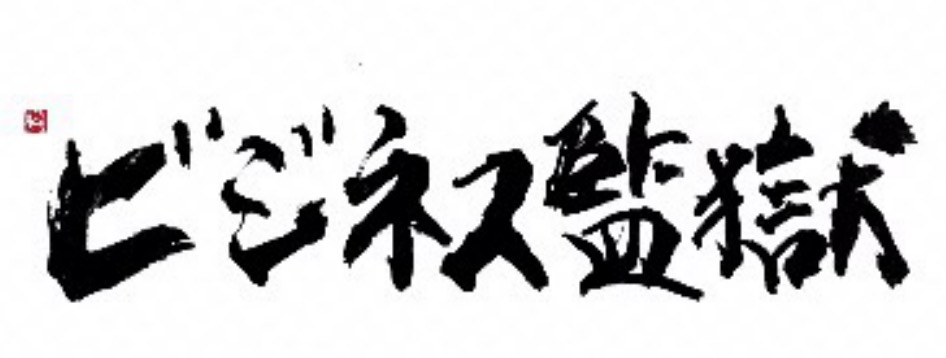 ビジネス監獄